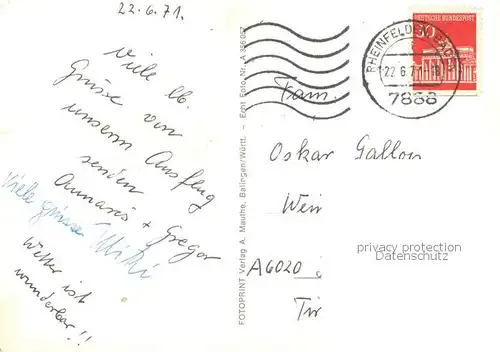 22.6.71.
Viele lb.
Grüsse von
unserem Ausflug
senden
Annarös + Gregor
Viele grüsse Mitzi
Wetter ist
wunderbar!!
FOTOPRINT Verlag A. Mauthe, Balingen/Württ. – Echt Foto Nr. A
DEUTSCHE BUNDESPOST
RHEINFELDEN (BADEN)
22.6.71
7888
Fam.
Oskar Gallon
Wein
A6020
Tir
privacy protection
Datenschutz